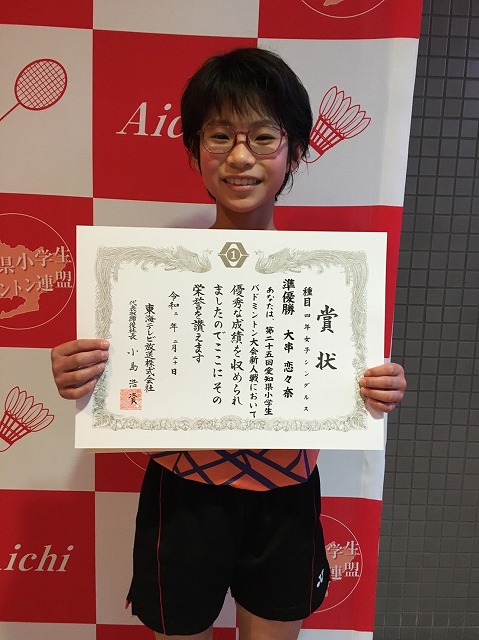 Aichi
県小学生
ミントン連盟
賞状
種目 四年女子シングルス
準優勝 大串 恋々奈
あなたは、第二十五回愛知県小学生
バドミントン大会新人戦において
優秀な成績を収められ
ましたのでここにその
栄誉を讃えます
令和二年二月二日
東海テレビ放送株式会社
代表取締役社長 小島 浩資
1
Aichi
小学生
ン連盟